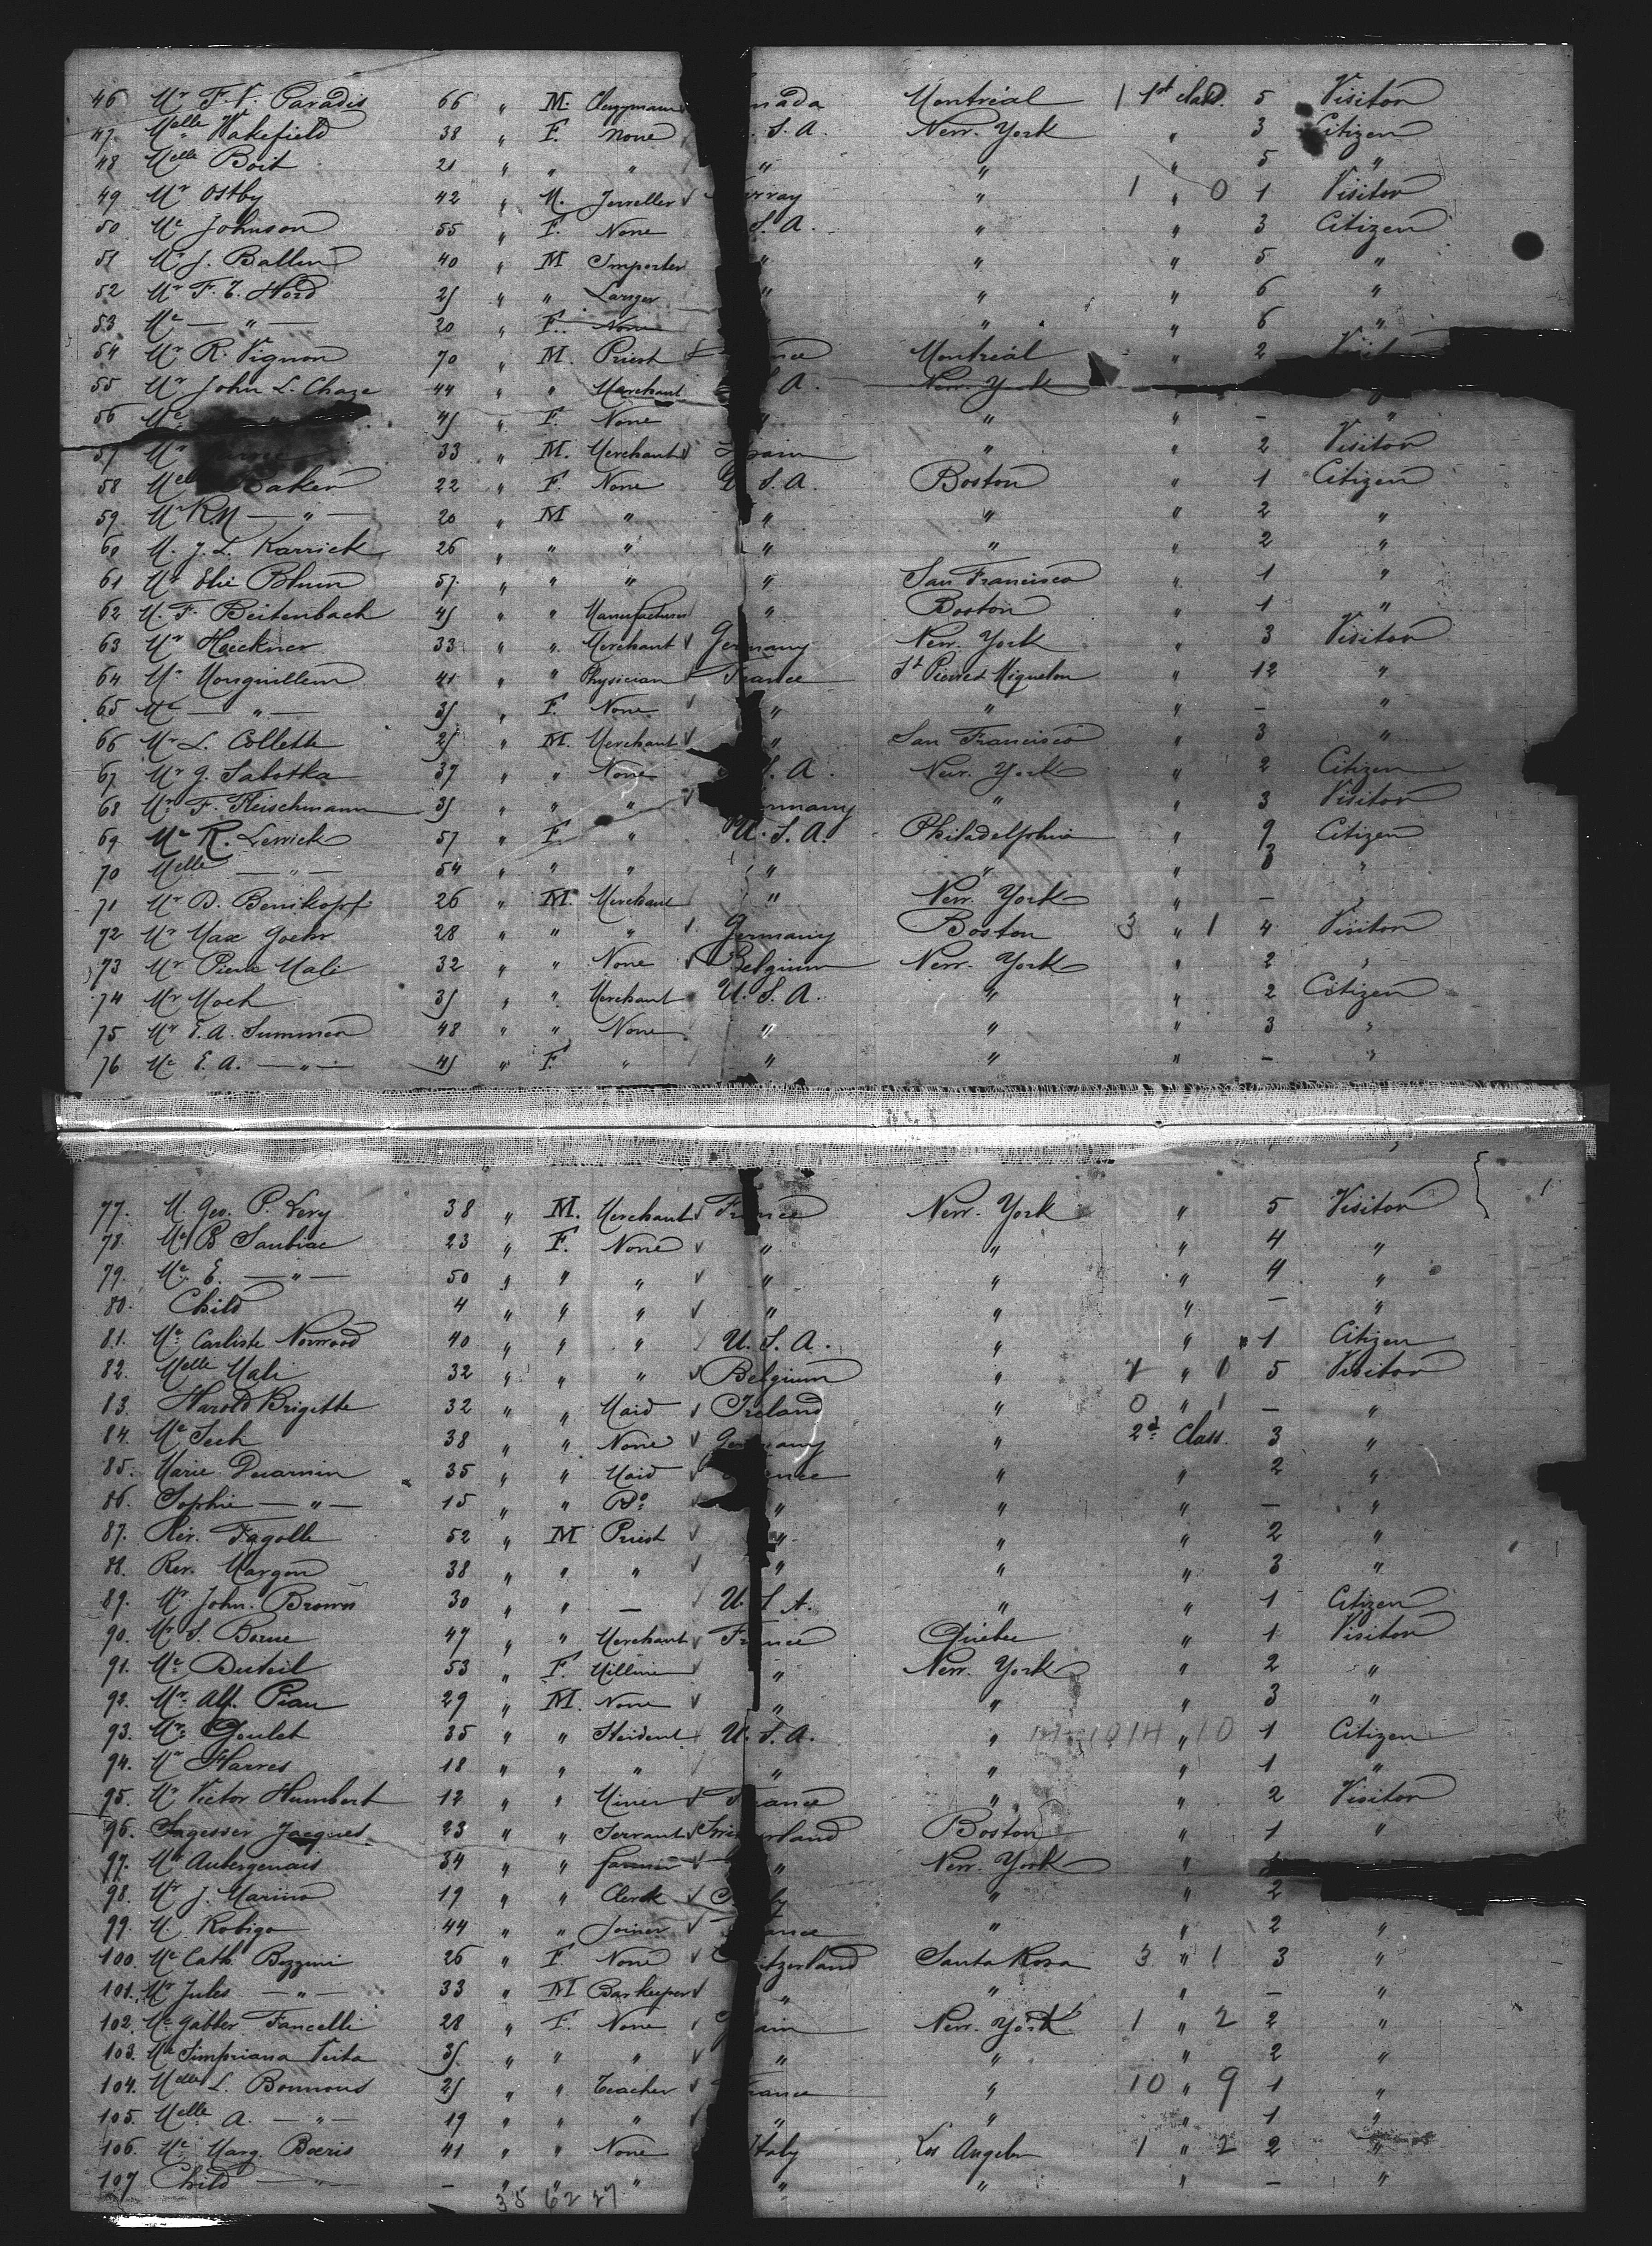 46 Mr F. V. Paradis 66 " M. Clergyman nada Montréal 1 1st class. 5 Visitor
47. Melle Wakefield 38 " F. None . S. A. New-York " 3 Citizen
48 Melle Boit 21 " " " " " " 5 "
49 Mr Ostby 42 " M. Jeweller √ rway " 1 " 0 1 Visitor
50 Me Johnson 55 " F. None S. A. " " 3 Citizen
51 Mr J. Ballin 40 " M Importer " " " 5 "
52 Mr F. T. Hord 25 " " " " " 6 "
53 Me — " — 20 " F. None " " 6 "
54 Mr R. Vignon 70 " M. Priest √ nce Montréal " 2
55 Mr John L. Chaze 44 " " Merchant A. New-York
56 Me 45 " F. None " " " — "
57 Mr 33 " M. Merchant √ pain " " 2 Visitor
58 Melle Baker 22 " F. None U S. A. Boston " 1 Citizen
59. Mr R.M — " — 20 " M " " " " 2 "
60 M. J. L. Karrick 26 " " " " " " 2 "
61 Mr Elie Blum 57. " " " " San Francisco " 1 "
62 M. F. Beitenbach 45 " " Manufacturer " Boston " 1 "
63 Mr Hoeckner 33 " " Merchant √ Germany New-York " 3 Visitor
64 Mr Monguillem 41 " " Physician France St Pierre & Miquelon " 12 "
65 Me — " — 35 " F. None √ " " " — "
66 Mr L. Collette 25 " M. Merchant √ " San Francisco " 3 "
67 Mr J. Sabotka 37 " " None S. A. New-York " 2 Citizen
68 Mr F. Fleischmann 35 " " " √ rmany " " 3 Visitor
69 Me R. Lewick 57 " F. " U. S. A. Philadelphia " 9 Citizen
70 Melle — " — 54 " " " " " " 3 "
71 Mr D. Bernkopf 26 " M. Merchant " New-York " — "
72 Mr Max Goehr 28 " " " √ Germany Boston 3 " 1 4 Visitor
73 Mr Pierre Mali 32 " " None √ Belgium New-York " 2 "
74 Mr Moch 35 " " Merchant U. S. A. " " 2 Citizen
75 Mr E. A. Summer 48 " " None " " " 3 "
76 Me E. A. — " — 45 " F. " " " " — "
77. M. Geo. P. Levy 38 " M. Merchant √ France New-York " 5 Visitor
78. Me B Saubiac 23 " F. None √ " " " 4 "
79. Me E. — " — 50 " " " √ " " " 4 "
80. Child 4 " " " √ " " " — "
81. Me Carliste Norwood 40 " " " U. S. A. " " 1 Citizen
82. Melle Mali 32 " " " √ Belgium " " 5 Visitor
83. Harold Brigitte 32 " " Maid √ Ireland " 0 " 1 — "
84. Me Sech 38 " " None √ Germany " 2d Class. 3 "
85. Marie Ducarmin 35 " " Maid √ ance " " 2 "
86. Sophie — " — 15 " " Do " " " — "
87. Rev. Fagolle 52 " M Priest √ " " " 2 "
88. Rev. Margon 38 " " " √ " " " 3 "
89. Mr John. Brown 30 " " — U. S. A. " " 1 Citizen
90. Mr S. Borne 47 " " Merchant √ France Québec " 1 Visitor
91. Me Duteil 53 " F. Milliner √ " New-York " 2 "
92. Mr Alf. Piau 29 " M. None √ " " " 3 "
93. Mr Goulet 35 " " Student U. S. A. " " 10 1 Citizen
94. Mr Harres 18 " " " " " " 1 "
95. Mr Victor Humbert 12 " " Miner √ France " " 2 Visitor
96. Sagesser Jacques. 23 " " Servant √ Swi erland Boston " 1 "
97. Mr Aubergenais 34 " " farmer √ " New-York "
98. Mr J. Marino 19 " " Clerk √ I ly " " 2
99. M. Robigo 44 " " Joiner √ France " " 2 "
100. Me Cath. Bozzini 26 " F. None √ itzerland Santa Rosa 3 " 1 3 "
101. Mr Jules — " — 33 " M Barkeeper √ " " " — "
102. Me Gabber Fancelli 28 " F. None pain New-York 1 " 2 2 "
103. Me Simpriana Veita 35. " " " √ " " " 2 "
104. Melle L. Bonnous 25 " " Teacher √ France " 10 " 9 1 "
105. Melle A. — " — 19 " " " √ " " " 1 "
106. Me Marg. Boeris 41 " " None Italy Los Angeles 1 " 2 2 "
107 Child — " — — " " " " " " — "
35 62 27